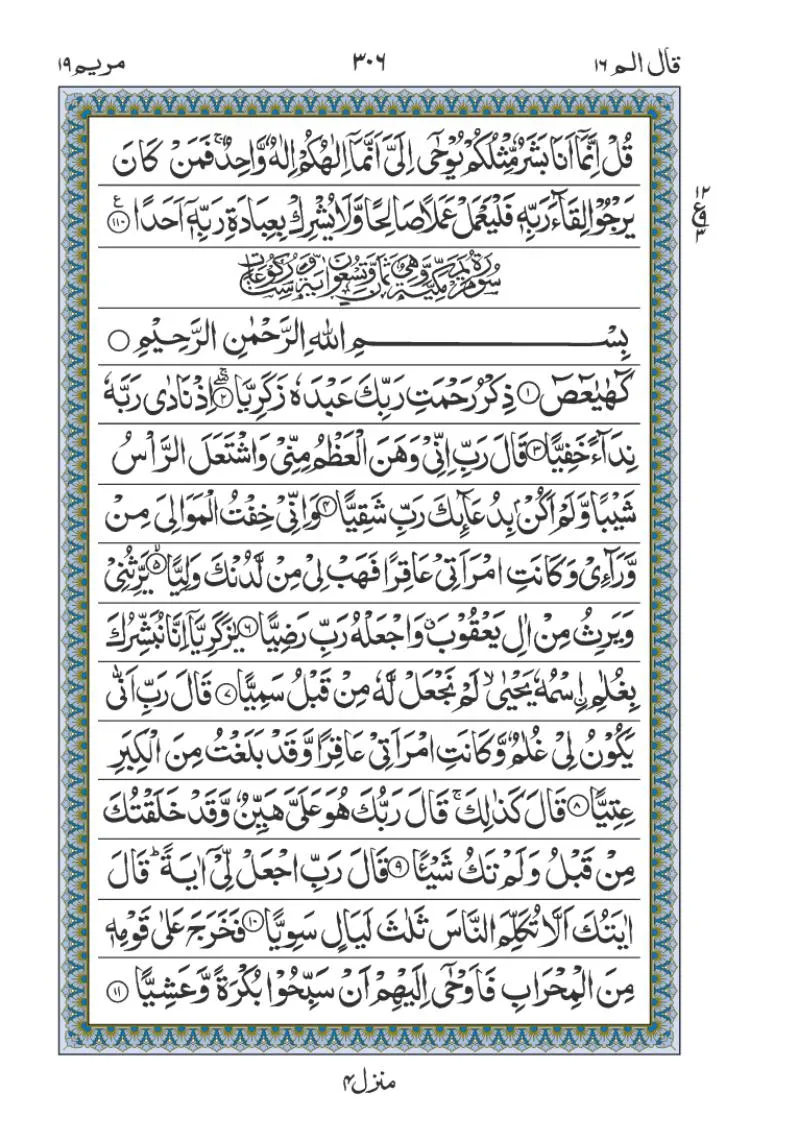 قال الم ١٦ ٣٠٦ مريم ١٩
قُلْ اِنَّمَاۤ اَنَا بَشَرٌ مِّثْلُكُمْ يُوْحٰۤى اِلَيَّ اَنَّمَاۤ اِلٰهُكُمْ اِلٰهٌ وَّاحِدٌ ۚ فَمَنْ كَانَ
يَرْجُوْا لِقَآءَ رَبِّهٖ فَلْيَعْمَلْ عَمَلًا صَالِحًا وَّلَا يُشْرِكْ بِعِبَادَةِ رَبِّهٖۤ اَحَدًا ؑ ﴿١١٠﴾
١٢
ع ٩
٣
سُوْرَةُ مَرْيَمَ مَكِّيَّةٌ وَّهِيَ ثَمَانٍ وَّتِسْعُوْنَ اٰيَةً وَّسِتُّ رُكُوْعَاتٍ
بِسْمِ اللهِ الرَّحْمٰنِ الرَّحِيْمِ ○
كٓهٰيٰعٓصٓ ﴿١﴾ ذِكْرُ رَحْمَتِ رَبِّكَ عَبْدَهٗ زَكَرِيَّا ﴿٢﴾ اِذْ نَادٰى رَبَّهٗ
نِدَآءً خَفِيًّا ﴿٣﴾ قَالَ رَبِّ اِنِّيْ وَهَنَ الْعَظْمُ مِنِّيْ وَاشْتَعَلَ الرَّاْسُ
شَيْبًا وَّلَمْ اَكُنْۢ بِدُعَآىِٕكَ رَبِّ شَقِيًّا ﴿٤﴾ وَاِنِّيْ خِفْتُ الْمَوَالِيَ مِنْ
وَّرَآءِيْ وَكَانَتِ امْرَاَتِيْ عَاقِرًا فَهَبْ لِيْ مِنْ لَّدُنْكَ وَلِيًّا ۙ ﴿٥﴾ يَّرِثُنِيْ
وَيَرِثُ مِنْ اٰلِ يَعْقُوْبَ ۖ وَاجْعَلْهُ رَبِّ رَضِيًّا ﴿٦﴾ يٰزَكَرِيَّاۤ اِنَّا نُبَشِّرُكَ
بِغُلٰمِ ِۨاسْمُهٗ يَحْيٰى ۙ لَمْ نَجْعَلْ لَّهٗ مِنْ قَبْلُ سَمِيًّا ﴿٧﴾ قَالَ رَبِّ اَنّٰى
يَكُوْنُ لِيْ غُلٰمٌ وَّكَانَتِ امْرَاَتِيْ عَاقِرًا وَّقَدْ بَلَغْتُ مِنَ الْكِبَرِ
عِتِيًّا ﴿٨﴾ قَالَ كَذٰلِكَ ۚ قَالَ رَبُّكَ هُوَ عَلَيَّ هَيِّنٌ وَّقَدْ خَلَقْتُكَ
مِنْ قَبْلُ وَلَمْ تَكُ شَيْـًٔا ﴿٩﴾ قَالَ رَبِّ اجْعَلْ لِّيْۤ اٰيَةً ؕ قَالَ
اٰيَتُكَ اَلَّا تُكَلِّمَ النَّاسَ ثَلٰثَ لَيَالٍ سَوِيًّا ﴿١٠﴾ فَخَرَجَ عَلٰى قَوْمِهٖ
مِنَ الْمِحْرَابِ فَاَوْحٰۤى اِلَيْهِمْ اَنْ سَبِّحُوْا بُكْرَةً وَّعَشِيًّا ﴿١١﴾
منزل ٤